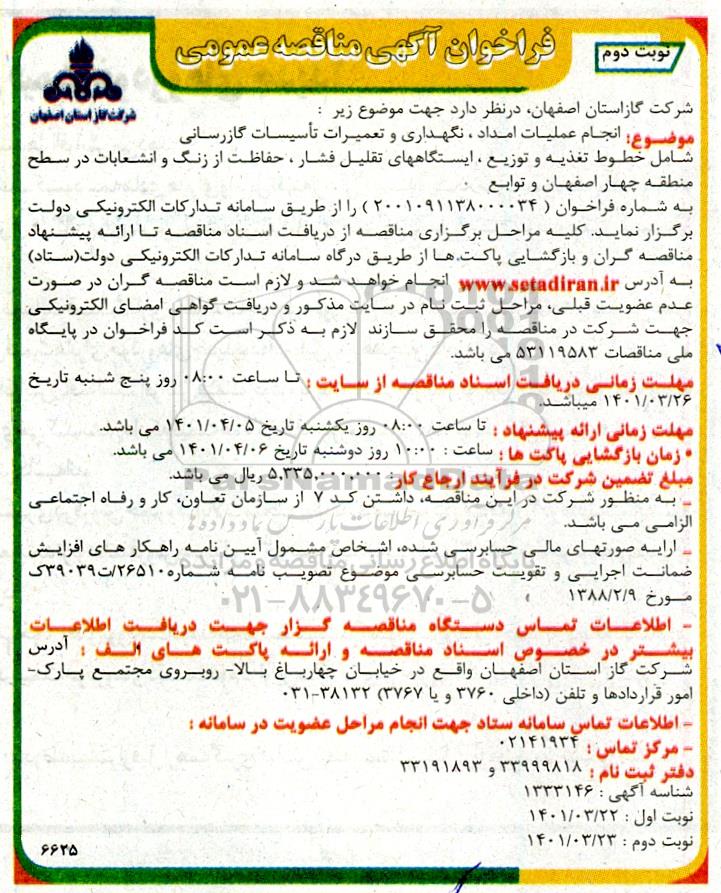 نوبت دوم
فراخوان آگهی مناقصه عمومی
شرکت گاز استان اصفهان
شرکت گازاستان اصفهان، درنظر دارد جهت موضوع زیر :
موضوع: انجام عملیات امداد ، نگهداری و تعمیرات تأسیسات گازرسانی
شامل خطوط تغذیه و توزیع ، ایستگاههای تقلیل فشار ، حفاظت از زنگ و انشعابات در سطح
منطقه چهار اصفهان و توابع
به شماره فراخوان ( ۲۰۰۱۰۹۱۱۳۸۰۰۰۰۳۴ ) را از طریق سامانه تدارکات الکترونیکی دولت
برگزار نماید. کلیه مراحل برگزاری مناقصه از دریافت اسناد مناقصه تا ارائه پیشنهاد
مناقصه گران و بازگشایی پاکت ها از طریق درگاه سامانه تدارکات الکترونیکی دولت(ستاد)
به آدرس www.setadiran.ir انجام خواهد شد و لازم است مناقصه گران در صورت
عدم عضویت قبلی، مراحل ثبت نام در سایت مذکور و دریافت گواهی امضای الکترونیکی
جهت شرکت در مناقصه را محقق سازند لازم به ذکر است کد فراخوان در پایگاه
ملی مناقصات ۵۳۱۱۹۵۸۳ می باشد.
مهلت زمانی دریافت اسناد مناقصه از سایت : تا ساعت ۰۸:۰۰ روز پنج شنبه تاریخ
۱۴۰۱/۰۳/۲۶ میباشد.
مهلت زمانی ارائه پیشنهاد : تا ساعت ۰۸:۰۰ روز یکشنبه تاریخ ۱۴۰۱/۰۴/۰۵ می باشد.
* زمان بازگشایی پاکت ها : ساعت : ۱۰:۰۰ روز دوشنبه تاریخ ۱۴۰۱/۰۴/۰۶ می باشد.
مبلغ تضمین شرکت در فرآیند ارجاع کار : ۵,۳۳۵,۰۰۰,۰۰۰ ریال می باشد.
_ به منظور شرکت در این مناقصه، داشتن کد ۷ از سازمان تعاون، کار و رفاه اجتماعی
الزامی می باشد.
_ ارایه صورتهای مالی حسابرسی شده، اشخاص مشمول آیین نامه راهکار های افزایش
ضمانت اجرایی و تقویت حسابرسی موضوع تصویب نامه شماره۲۶۵۱۰/ت۳۹۰۳۹ک
مورخ ۱۳۸۸/۲/۹
- اطلاعات تماس دستگاه مناقصه گزار جهت دریافت اطلاعات
بیشتر در خصوص اسناد مناقصه و ارائه پاکت های الف : آدرس
شرکت گاز استان اصفهان واقع در خیابان چهارباغ بالا- روبروی مجتمع پارک-
امور قراردادها و تلفن (داخلی ۳۷۶۰ و یا ۳۷۶۷) ۳۸۱۳۲-۰۳۱
- اطلاعات تماس سامانه ستاد جهت انجام مراحل عضویت در سامانه :
- مرکز تماس : ۰۲۱۴۱۹۳۴
دفتر ثبت نام : ۳۳۹۹۹۸۱۸ و ۳۳۱۹۱۸۹۳
شناسه آگهی : ۱۳۳۳۱۴۶
نوبت اول : ۱۴۰۱/۰۳/۲۲
نوبت دوم : ۱۴۰۱/۰۳/۲۳
۶۶۲۵
ParsNamadData
مرکز فرآوری اطلاعات پارس نماد داده ها
پایگاه اطلاع رسانی مناقصه و مزایده
۰۲۱-۸۸۳۴۹۶۷۰-۵